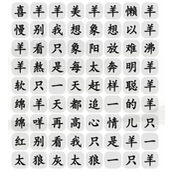 喜羊羊美羊羊懒羊
慢别我想象想以羊
羊看只象阳放难沸
羊熬是每太奔明羊
软只一天赶样聪羊
绵羊天都追一的羊
绵咩再高心情儿只
红别看我只是羊一
太狼灰太狼一只羊